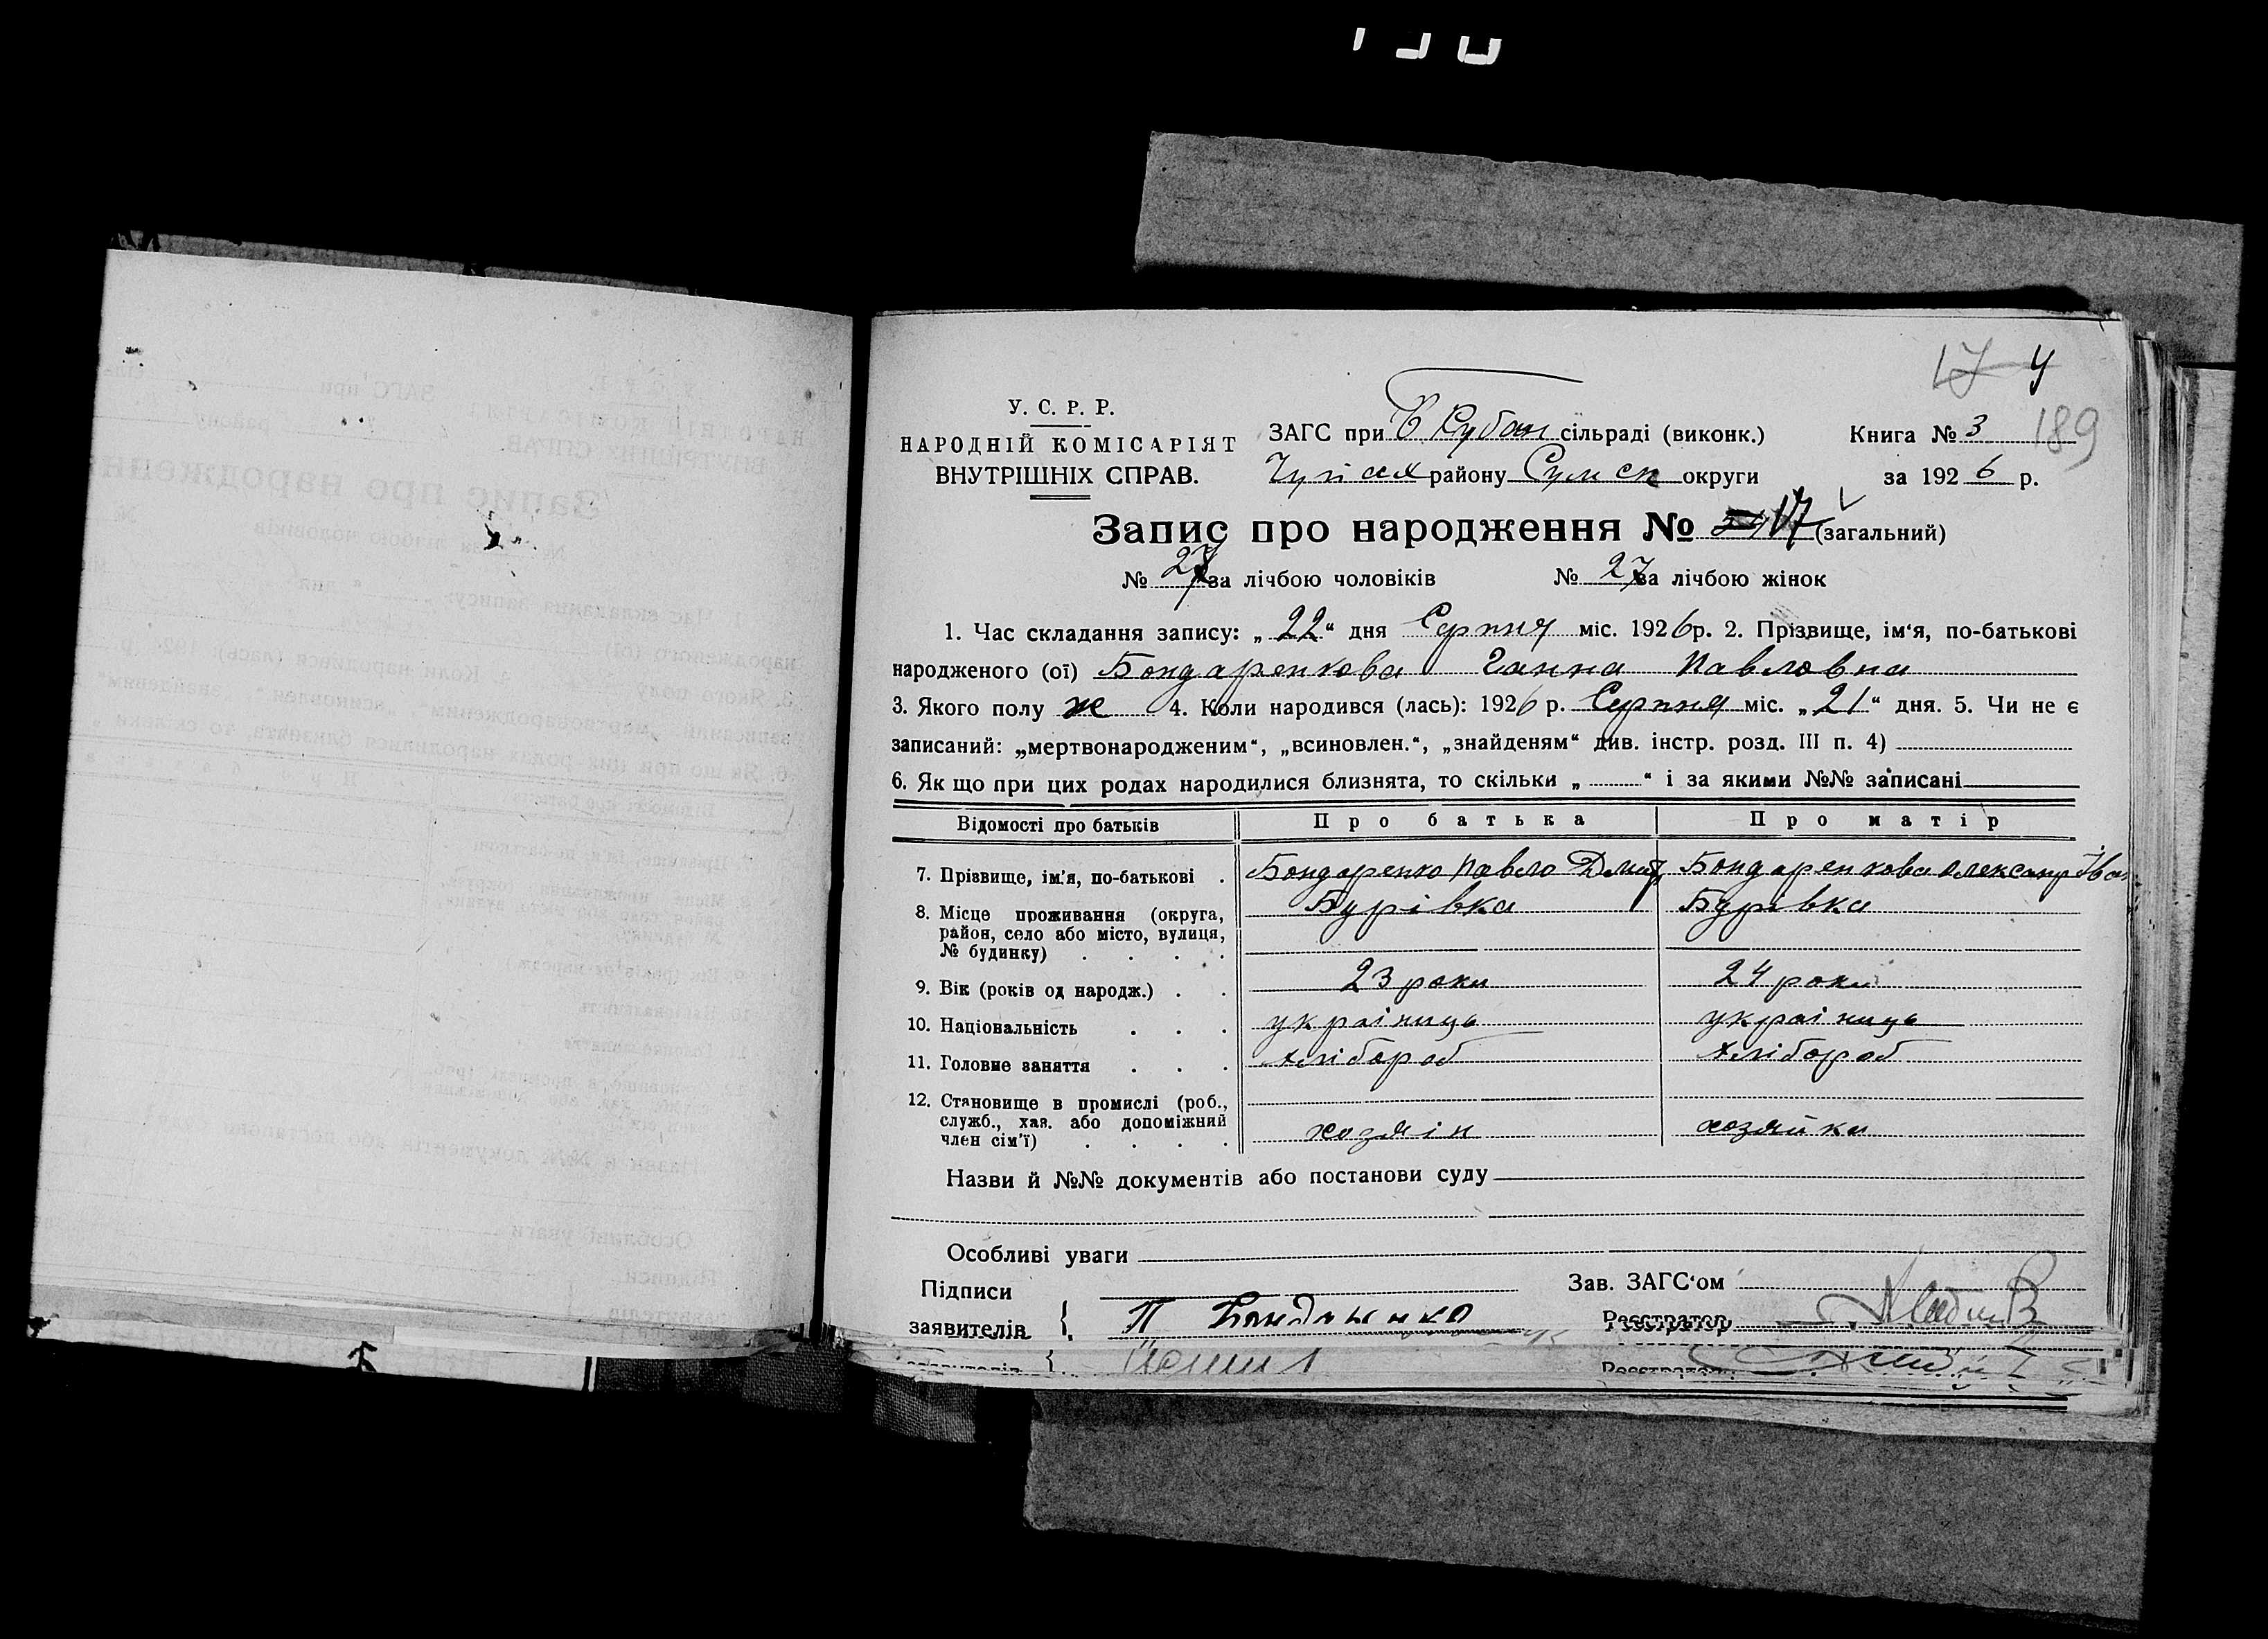 4
189
У. С. Р. Р.
НАРОДНІЙ КОМІСАРІЯТ
ВНУТРІШНІХ СПРАВ.
ЗАГС при сільраді (виконк.)
району Сумск округи
Книга № 3
за 1926 р.
Запис про народження № 17 (загальний)
№ за лічбою чоловіків № 27 за лічбою жінок
1. Час складання запису: „ 22 “ дня Серпня міс. 1926 р. 2. Прізвище, ім‘я, по-батькові
народженого (ої) Бондаренкова Ганна Павловна
3. Якого полу ж 4. Коли народився (лась): 1926 р. Серпня міс. „ 21 “ дня. 5. Чи не є
записаний: „мертвонародженим“, „всиновлен.“, „знайденям“ див. інстр. розд. III п. 4)
6. Як що при цих родах народилися близнята, то скільки „ “ і за якими №№ записані
Відомості про батьків Про батька Про матір
7. Прізвище, ім‘я, по-батькові . Бондаренко Павло Дмит Бондаренкова Олександ Іван
8. Місце проживання (округа, Бурівка Бурівка
район, село або місто, вулиця,
№ будинку) . . . .
9. Вік (років од народж.) . . 23 роки 24 роки
10. Національність . . . україниць україниць
11. Головне заняття . . . хлібороб хлібороб
12. Становище в промислі (роб.,
служб., хаз. або допоміжний
член сім‘ї) . . . . хозяін хозяйка
Назви й №№ документів або постанови суду
Особливі уваги
Підписи
заявителів { П Бондаренко
Зав. ЗАГС‘ом
Реєстратор
Реєстратор